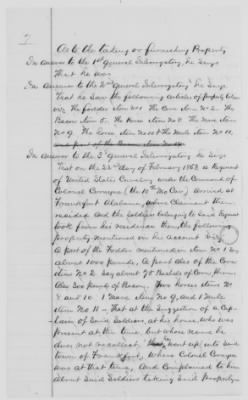 2
As to the taking or furnishing Property
In Answer to the 1st General Interrogatory he Says
That he was
In Answer to the 2nd General Interrogatory he Says
That he Saw the following articles of property taken
viz. The fodder item No 1 The Corn item No 2. The
Bacon item 5. The item No 8 The item
No 9. The Horse item No 10 & The Mule item No 11.
and part of the
In Answer to the 3rd General Interrogatory he Says
That on the 22nd day of February 1863 a Regiment
of United States Cavalry under the Command of
Colonel Cornyn (the 10th Mo Cav) arrived at
Frankfort Alabama, where Claimant then
resided and the Soldiers belonging to Said Regiment
took from his residence then, the following
property mentioned on his account
A part of the Fodder mentioned in item No 1 Say
about 1000 pounds, A part also of the Corn
item No 2 Say about 75 Bushels of Corn, them
Also 200 pounds of Bacon, items No
8 and 10 1 item No 9, and 1 Mule
item No 11 – That at the Suggestion of a Cap-
tain of Said Soldiers, at his house, who was
present at the time, but whose name he
does not recollect, he went up into Said
town of Frankfort, where Colonel Cornyn
was at that time, and Complained to him
about Said Soldiers taking Said Property